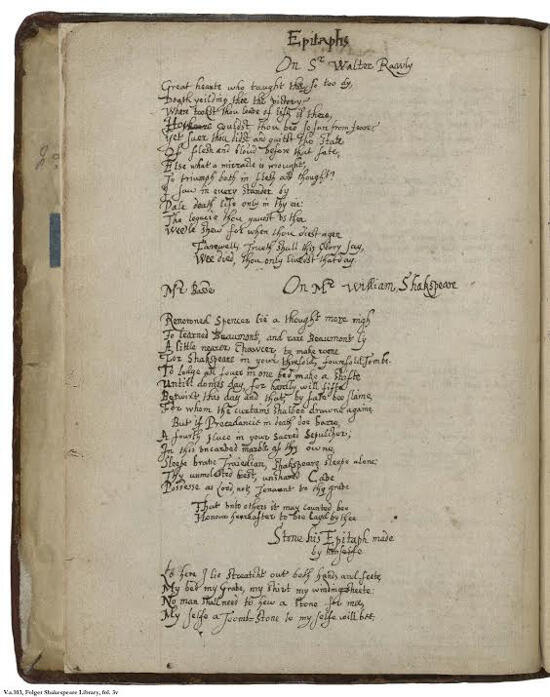 Epitaphs
On Sr Walter Rawly
Great hearte who taught thee so too dy,
Death yeilding thee the victory
Where tookst thou leave of life if there,
How couldst thou bee so farr from feare
Yet sure thou didst and quitst the state
Of flesh and bloud before that fate,
Else what a miracle is wrought,
To triumph both in flesh and thought?
I saw in every stander by
Pale death life only in thy eie:
The legacie thou gavest us then
Weele shew for when thou diest agen
Farewell, Trueth shall this story say,
Wee died, thou only livedst that day.
Mr Basse
On Mr William Shakspeare
Renowned Spencer lie a thought more nigh
To learned Beaumont, and rare Beaumont ly
A little nearer Chawcer, to make roome
For Shakspeare in your threfold, fowrfold Tombe.
To lodge all fower in one bed make a shifte
Untill domes day, for hardly will fifte
Betwixt this day and that by fate bee slaine
For whom the curtains shalbee drawne againe
But if Precedencie in death doe barre,
A fourth place in your Sacred Sepulcher;
In this uncarved marble of thy owne
Sleepe brave Tragedian, Shakspeare sleepe alone
Thy unmolested rest, unshared Cave
Possesse as Lord, not Tenant to thy grave
That unto others it may counted bee
Honour hereafter to bee layd by thee
Stone his Epitaph made
by himselfe
here I lie streatcht out both hands and feete
My bed my Grave, my shirt my winding sheete
No man shall need to hew a stone for mee
My selfe a Toomb-Stone to my selfe will bee
V.a.103, Folger Shakespeare Library, fol. 3v